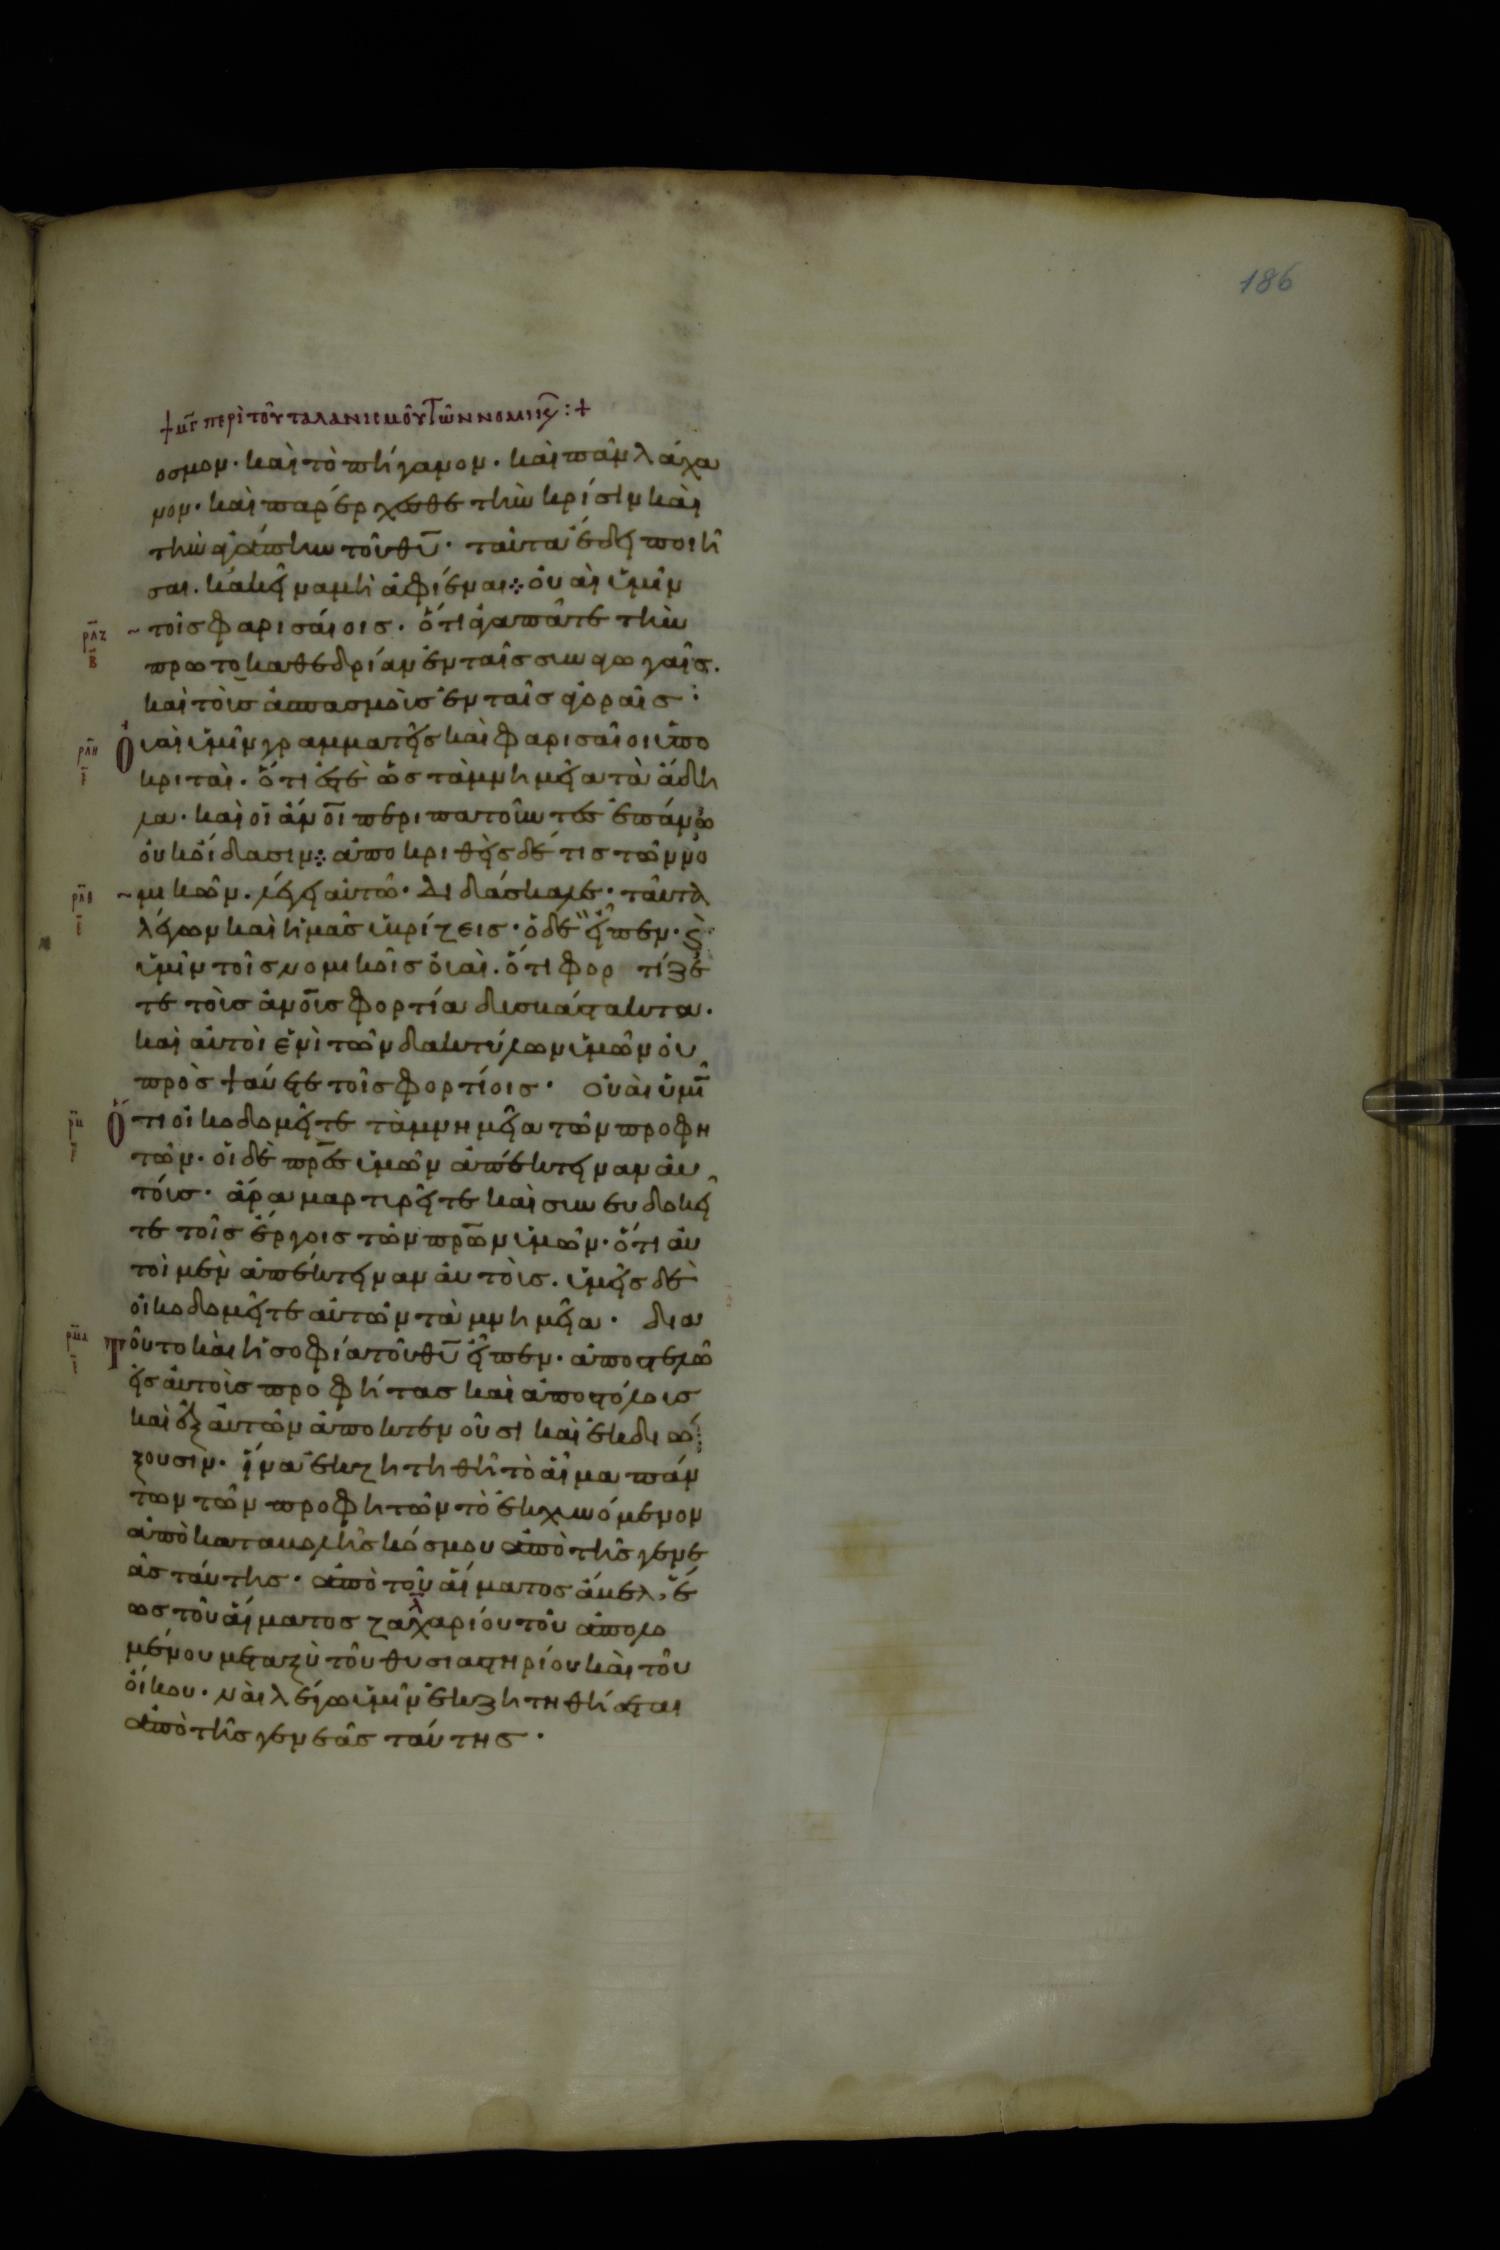 186
+ μγ περὶ τοῦ ταλανισμοῦ τῶν νομικ :+
οσμον· καὶ τὸ πήγανον· καὶ πᾶν λάχα
νον· καὶ παρέρχεσθε τὴν κρίσιν καὶ
τὴν ἀγάπην τοῦ θῦ· ταῦτα ἔδει ποιῆ
σαι· κἀκεῖνα μὴ ἀφιέναι⁘ οὐαὶ ὑμῖν
ρλζ β ~ τοῖς φαρισάιοις· ὅτι ἀγαπᾶτε τὴν
πρωτοκαθεδρίαν ἐν ταῖς συναγωγαῖς.
καὶ τοὺς ἀσπασμοὺς ἐν ταῖς ἀγοραῖς :
ρλη ι Οὐαὶ ὑμῖν γραμματεῖς καὶ φαρισαῖοι ὑπο
κριταὶ· ὅτι ἐστὲ ὡς τὰ μνημεῖα τὰ ἄδη
λα· καὶ οἱ ἄνοι περιπατοῦντες ἐπάνω
οὐκ οἴδασιν⁘ ἀποκριθεὶς δέ τις τῶν νο
ρλθ ι ~ μικῶν· λέγει αὐτῶ· διδάσκαλε· ταῦτα
λέγων καὶ ἡμᾶς ὑβρίζεις· ὁ δὲ εἶπεν· ϗ
ὑμῖν τοῖς νομικοῖς οὐαὶ· ὅτι φορτίζε
τε τοὺς ἀνους φορτία δυσβάστακτα·
καὶ αὐτοὶ ἑνὶ τῶν δακτύλων ὑμῶν οὐ
προσψαύετε τοῖς φορτίοις· Οὐαὶ ὑμῖ
ρμ ι Ὅτι οἰκοδομεῖτε τὰ μνημεῖα τῶν προφη
τῶν· οἱ δὲ πρες ὑμῶν ἀπέκτειναν αὐ
τούς· ἄρα μαρτυρεῖτε καὶ συνευδοκεῖ
τε τοῖς ἔργοις τῶν πρων ὑμῶν· ὅτι αὐ
τοὶ μὲν ἀπέκτειναν αὐτοὺς· ὑμεῖς δὲ
οἰκοδομεῖτε αὐτῶν τὰ μνημεῖα· δια
ρμα ι Τοῦτο καὶ ἡ σοφία τοῦ θῦ εἶπεν· ἀποστελῶ
εἰς αὐτοὺς προφήτας καὶ ἀποστόλους
καὶ ἐξ αὐτῶν ἀποκτενοῦσι καὶ ἐκδιώ
ξουσιν· ἵνα ἐκζητηθῆ τὸ αἷμα πάν
των τῶν προφητῶν τὸ ἐκχυνόμενον
ἀπὸ καταβολῆς κόσμου ἀπὸ τῆς γενε
ᾶς ταύτης· ἀπὸ τοῦ αἵματος ἄβελ, ἕ
ως τοῦ αἵματος ζαχαρίου τοῦ ἀπολο
μένου μεταξὺ τοῦ θυσιαστηρίου καὶ τοῦ
οἴκου· ναὶ λέγω ὑμῖν ἐκζητηθήσεται
ἀπὸ τῆς γενεᾶς ταύτης·